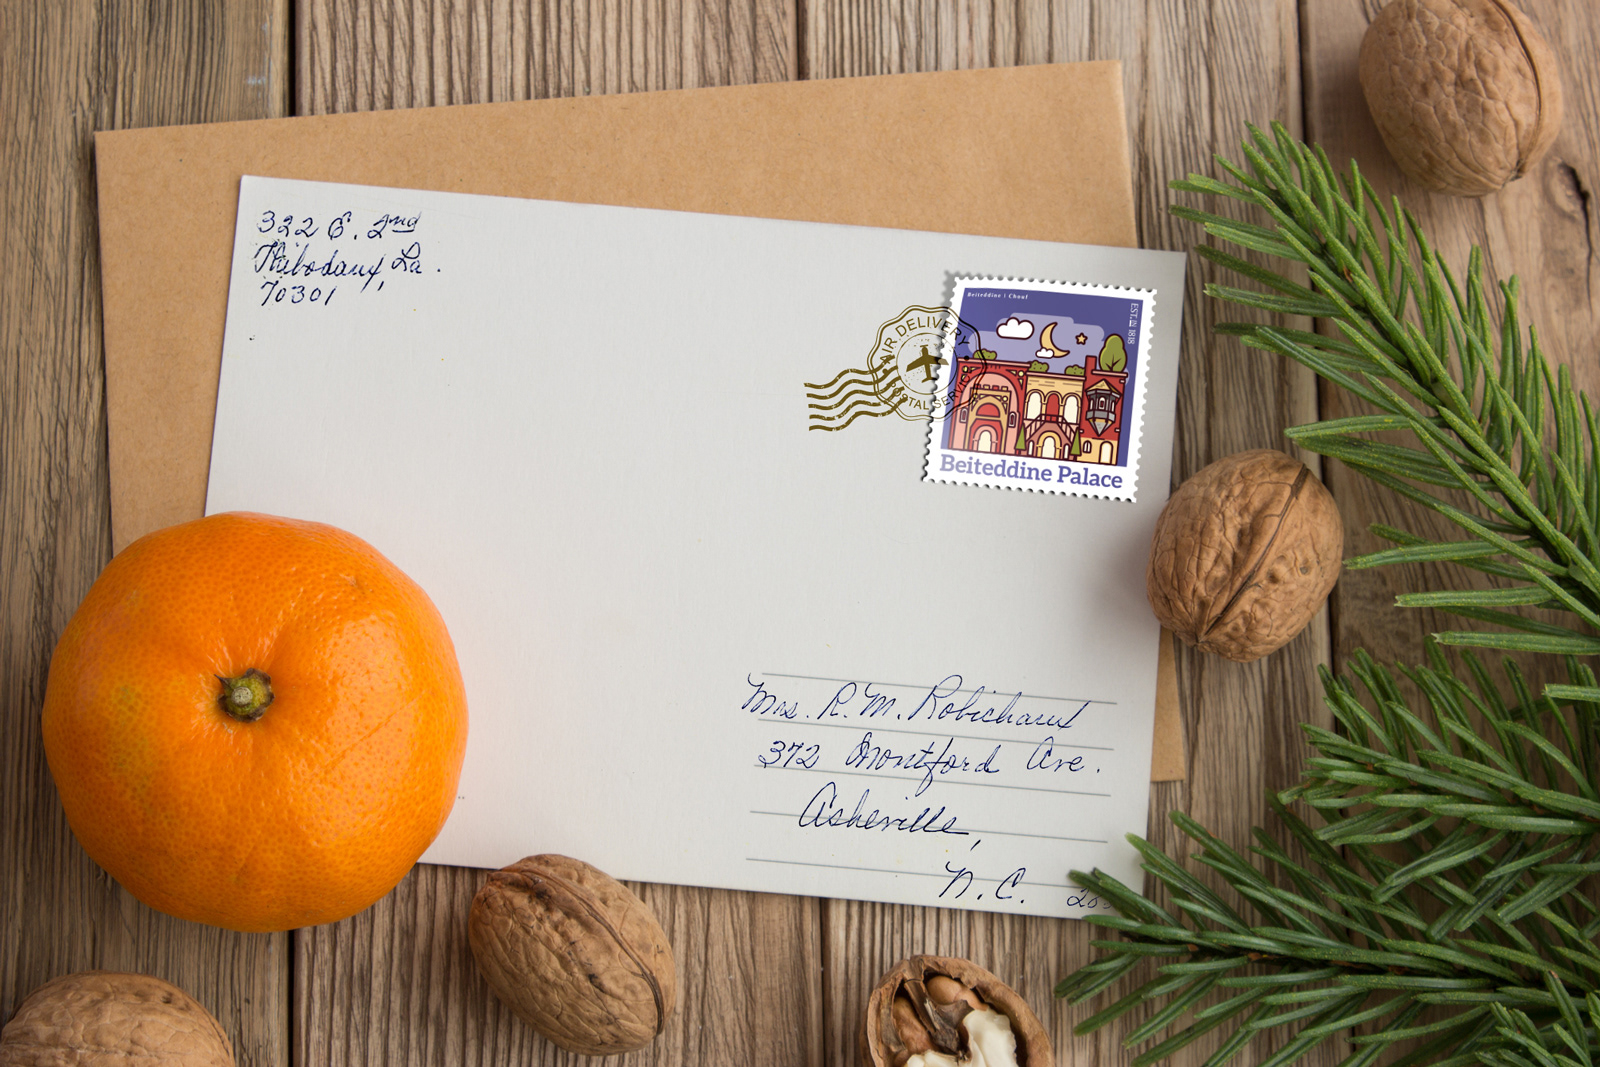 322 E. 2nd
Thibodaux, La.
70301
Beiteddine | Chouf
EST. 1818
AIR DELIVERY
POSTAL SERVICE
Beiteddine Palace
Mrs. R. M. Robichaux
372 Montford Ave.
Asheville,
N. C.